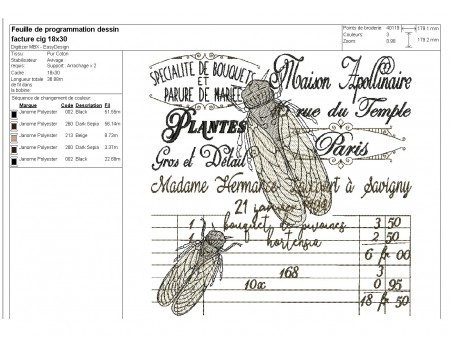 Feuille de programmation dessin
facture cig 18x30
Digitizer MBX - EasyDesign
Points de broderie 40118
Couleurs: 3
Zoom: 0.98
179.1 mm
179.2 mm
Tissu: Pur Coton
Stabilisateur requis: Arrivage
Support: Arrachage x 2
Cadre: 18x30
Longueur totale de fil dans la bobine: 36.80m
Séquence de changement de couleur:
Marque Code Description Fil
Janome Polyester 002 Black
Janome Polyester 260 Dark Sepia
Janome Polyester 213 Beige 8.73m
Janome Polyester 260 Dark Sepia 3.37m
Janome Polyester 002 Black
SPECIALITE DE BOUQUETS
ET
PARURE DE MARIEE
Maison Apollinaire
rue du Temple
PLANTES
Paris
Gros et Détail
Madame Hermance à Savigny
21 janvier
1 bouquet de pivoines 3 50
hortensia 2 50
6 fr 00
168 3
10x 0 95
18 fr 50